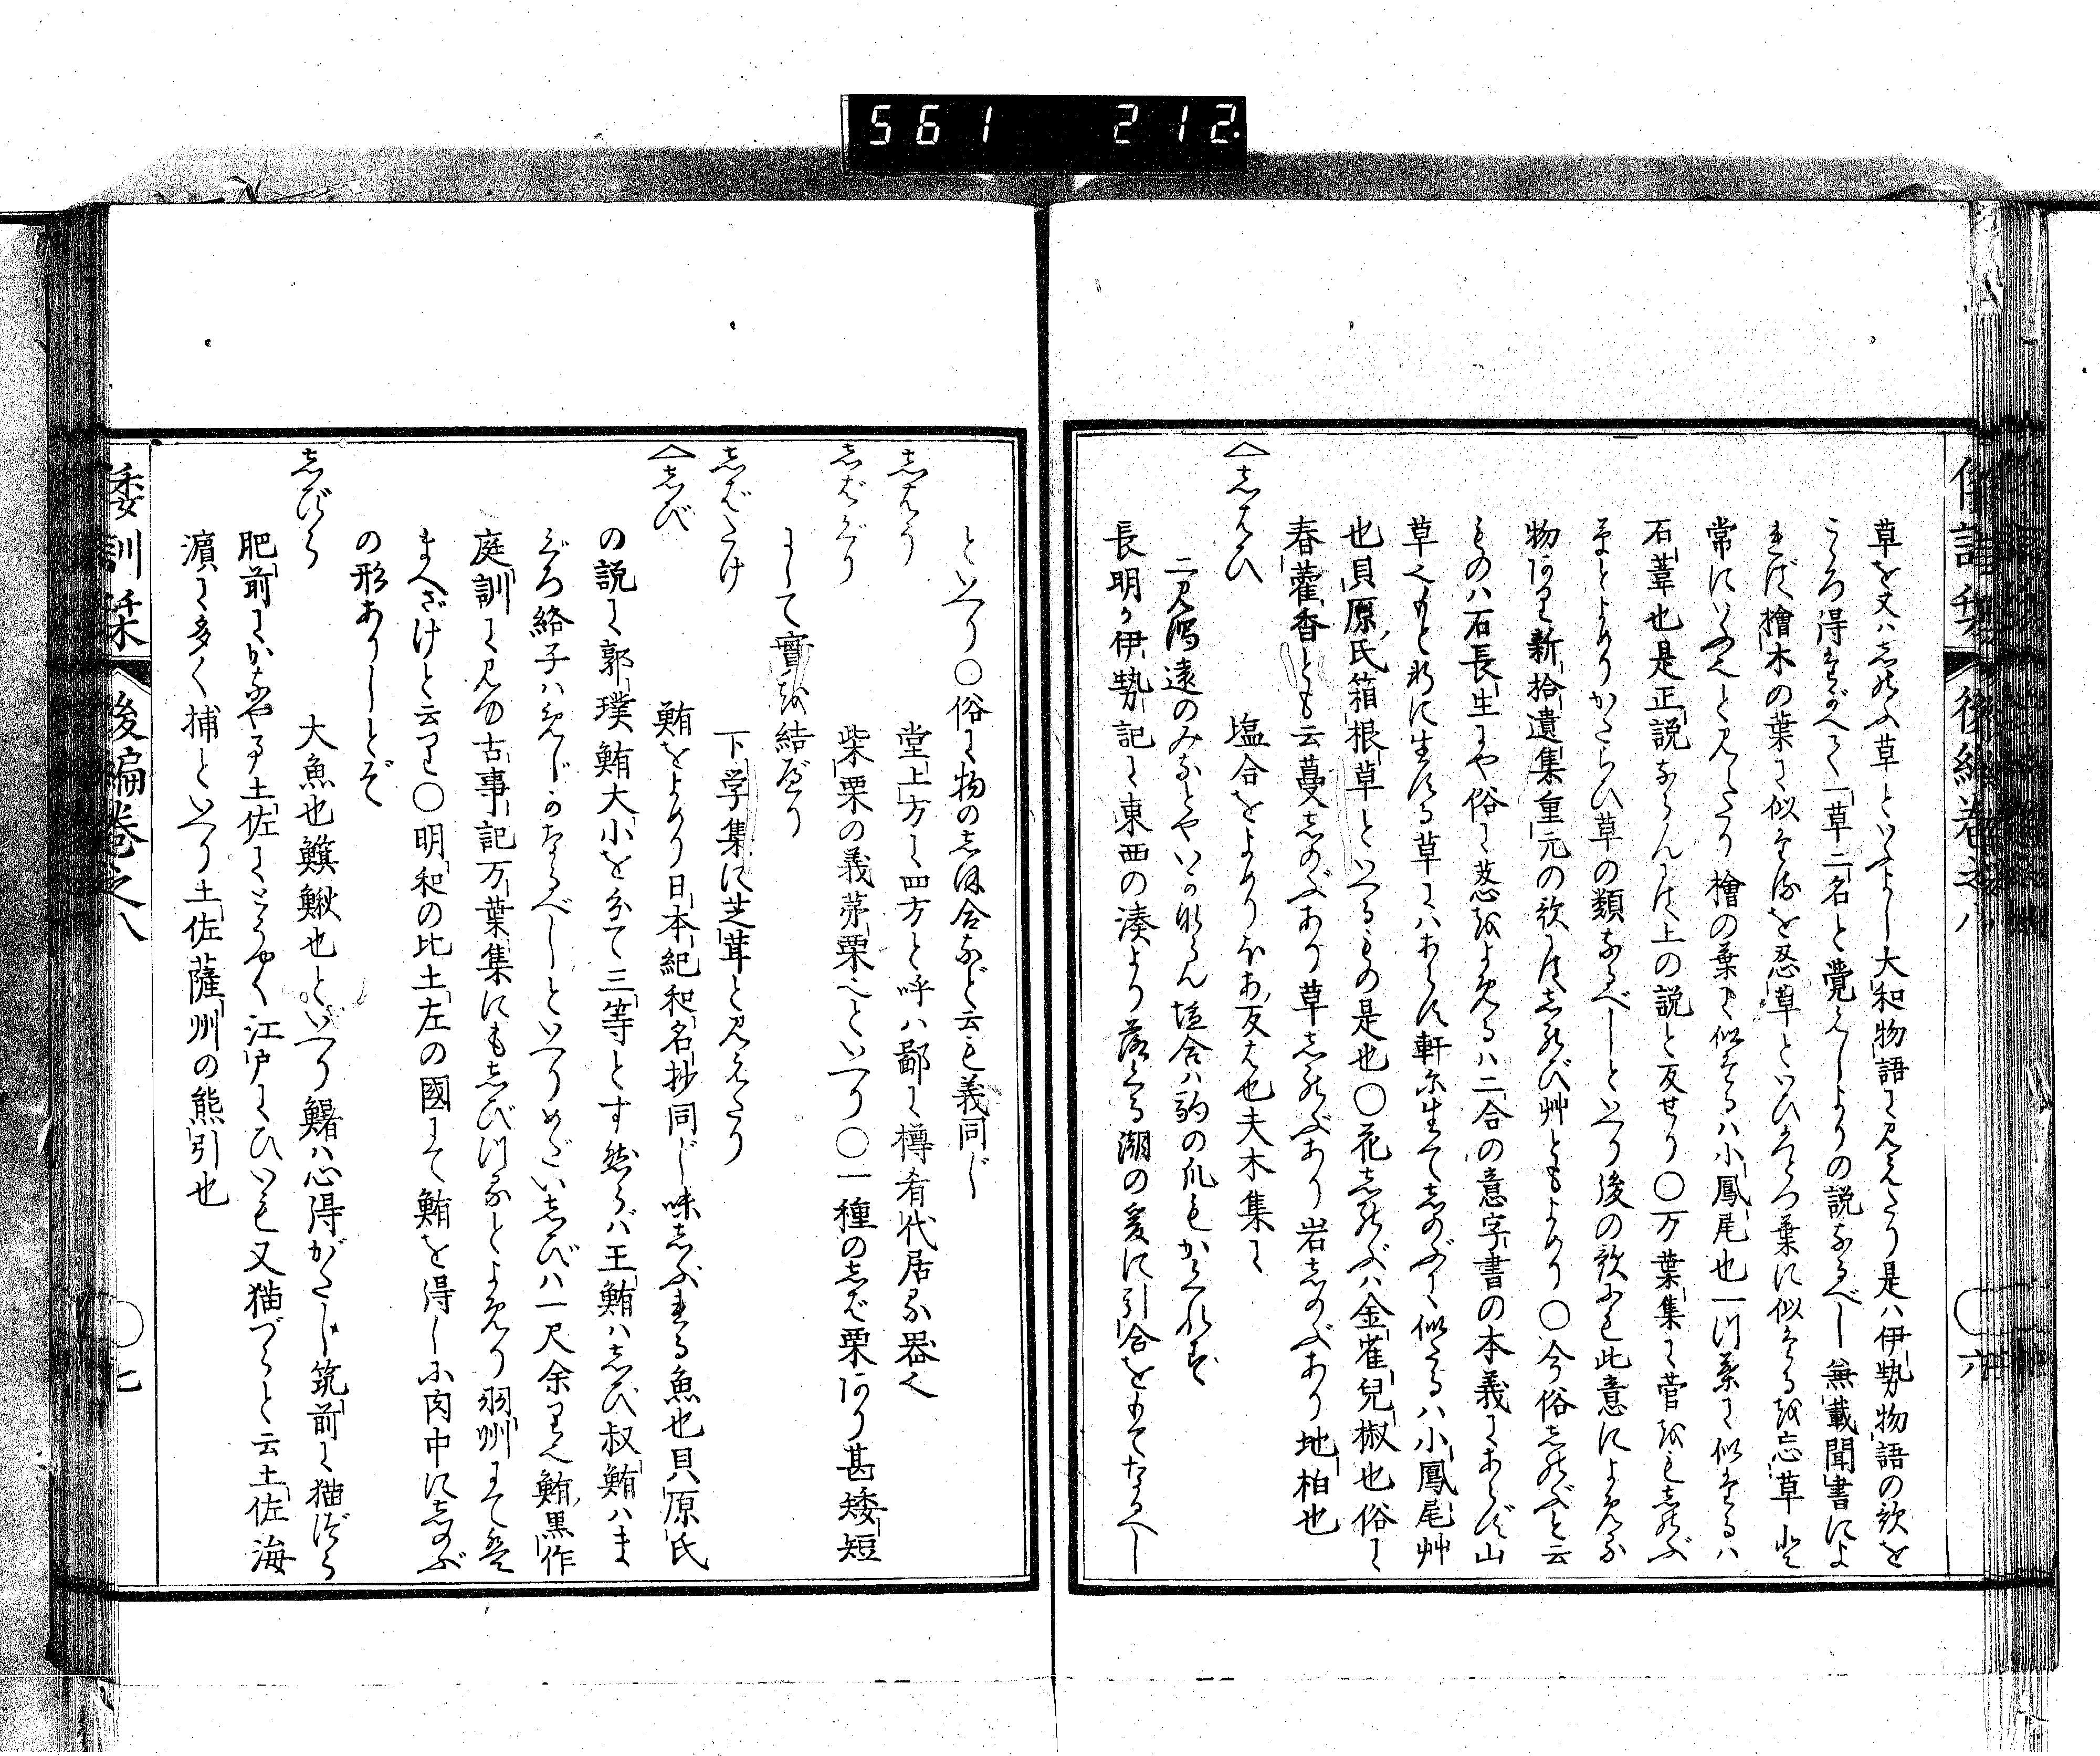 561 212.
倭訓栞 後編巻之八 六
草を又ハしのふ草といふよし大和物語に見えたり是ハ伊勢物語の歌を
こゝろ得そこなへて一草二名と覚えしよりの説なるべし無載聞書によ
れば檜木の葉に似たるを忍草といひ
葉に似たるを忘草
常にいふ
と見えたり檜の葉に似たるハ小鳳尾也一つ葉に似たるハ
石葦也是正説ならんされば上の説と反せり○万葉集に菅をもしのぶ
草とよめりかたらひ草の類なるべしといへり後の歌にも此意によめる
物あり新拾遺集重元の歌にはしのび艸ともよめり○今俗しのぶと云
ものハ石長生にや俗に荵をよめるハ二合の意字書の本義にあらず山
草也もと水に生する草にハあらず軒に生てしのぶに似たるハ小鳳尾艸
也貝原氏箱根草といへるもの是也○花しのぶハ金雀児椒也俗に
春藿香とも云蔓しのぶあり草しのぶあり岩しのぶあり地柏也
へしほひ
塩合をよめりほあ反は也夫木集に
二見潟遠のみなとやいかならん塩合ハ駒の爪もかくれず
長明か伊勢記に東西の湊より落くる潮の爰に引合をもてなるへし
といへり○俗に物のしほ合など云も義同じ
しはう
堂上方に四方と呼ハ鄙に樽肴代居る器也
しばぐり
柴栗の義茅栗也といへり○一種のしば栗あり甚矮短
にして實を結べり
しばたけ
下学集に芝茸と見えたり
へしび
鮪をよめり日本紀和名抄同じ味しぶれる魚也貝原氏
の説に郭璞鮪大小を分て三等とす然らバ王鮪ハしび叔鮪ハま
ぐろ絡子ハめじかなるべしといへりめだいしびハ一尺余有也鮪黒作
庭訓に見ゆ古事記万葉集にもしびつくとよめり羽州にて
まへざけと云り○明和の比土左の國にて鮪を得しに肉中にしのぶ
の形ありしとぞ
しびら
大魚也鱵鰍也といへり鱪ハ心得がたし筑前に猫づら
肥前にかなやま土佐にとうやく江戸にひいを又猫づらと云土佐海
濵に多く捕といへり土佐薩州の熊引也
倭訓栞 後編巻之八 七